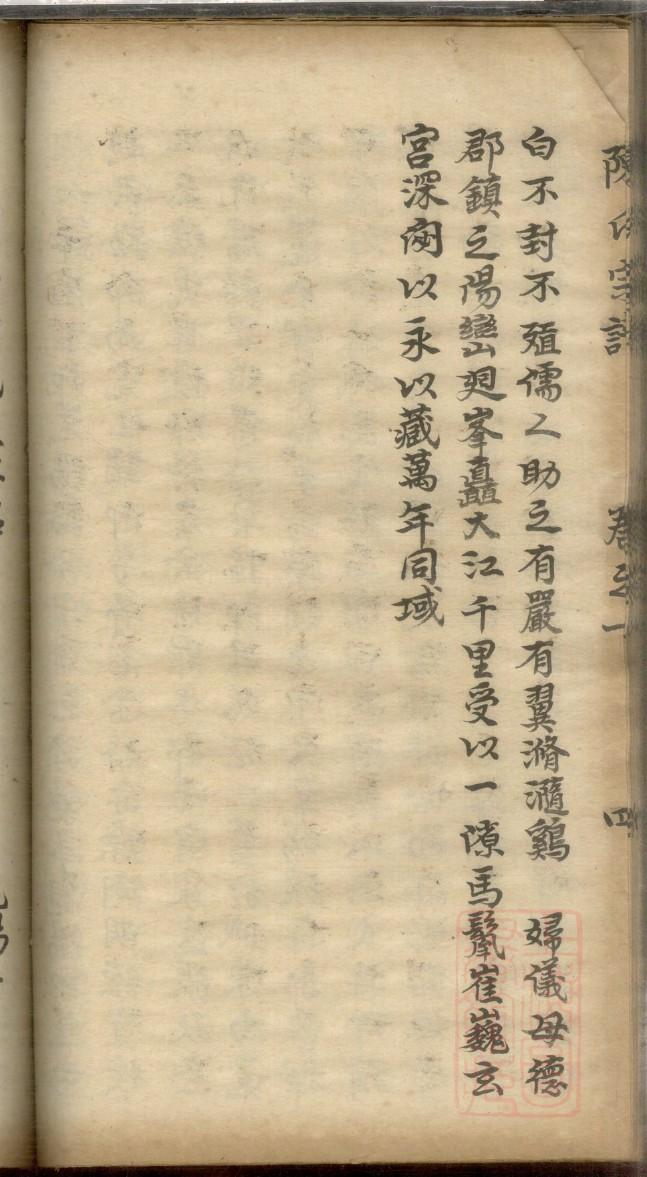 陳氏宗譜 卷之一 四
白不封不殖儒人助之有嚴有翼滫瀡鷄 婦儀母德
郡鎮之陽巒廻峯矗大江千里受以一隙馬鬣崔巍玄
宮深閟以永以藏萬年同域